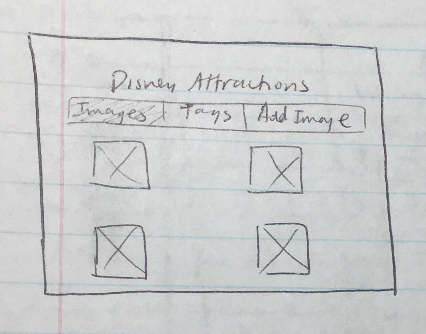 Disney Attractions
Images Tags Add Image